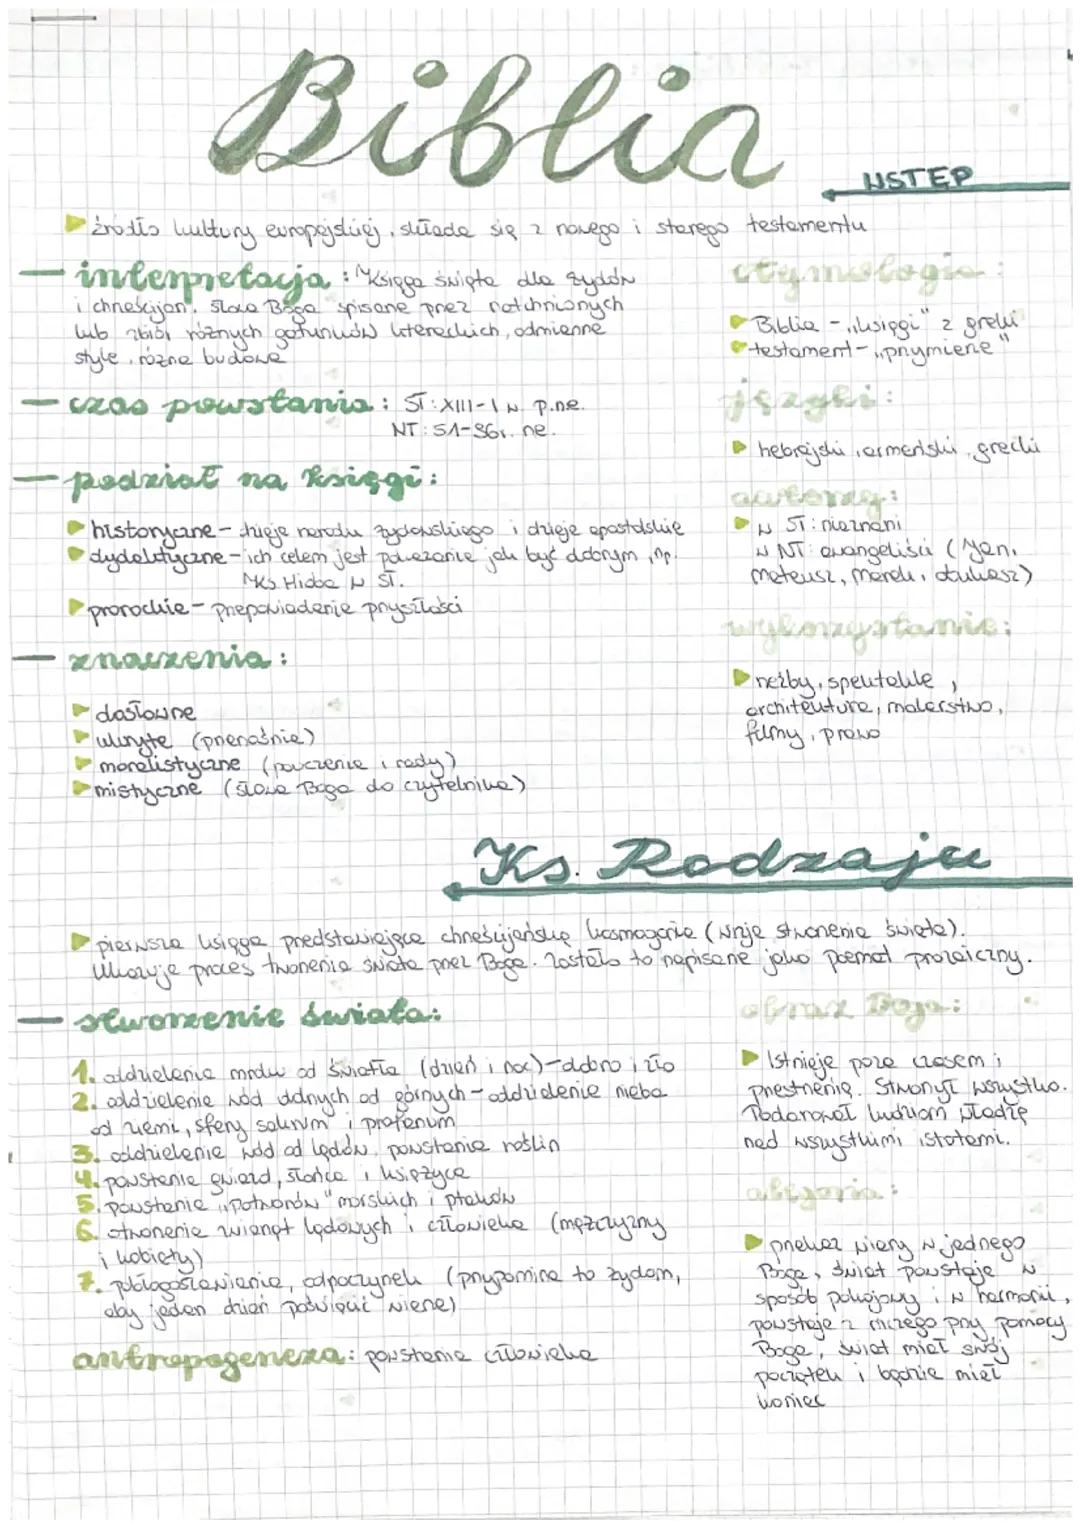 Biblia
WSTĘP
źródło kultury europejskiej, składa się z nowego i starego testamentu
interpretacja: Księga święta dla żydów
i chrześcijan. Słowo Boga spisane przez natchnionych
lub zbiór różnych gatunków literackich, odmienne
style, różna budowa
czas powstania: ST: XIII-I w. p.n.e.
NT: 51-96r. ne.
podział na księgi:
historyczne - dzieje narodu żydowskiego i dzieje apostolskie
dydaktyczne - ich celem jest pouczanie jak być dobrym, np.
Ks Hioba w ST.
prorockie - przepowiadanie przyszłości
znaczenia:
dosłowne
ukryte (przenośnie)
moralistyczne (pouczenie i rady)
mistyczne (słowa Boga do czytelnika)
etymologia:
Biblia - „księgi" z greki
testament - „przymierze"
języki:
hebrajski, armeński, grecki
autorzy:
w ST: nieznani
w NT: ewangeliści (Jan,
Mateusz, Marek, Łukasz)
wykorzystanie:
rzeźby, spektakle,
architektura, malarstwo,
filmy, prawo
Ks. Rodzaju
pierwsza księga przedstawiająca chrześcijańską kosmogonię (wizję stworzenia świata).
Ukazuje proces tworzenia świata przez Boga. Zostało to napisane jako poemat prozaiczny.
stworzenie świata:
1. oddzielenie mroku od światła (dzień i noc) - dobro i zło
2. oddzielenie wód dolnych od górnych - oddzielenie nieba
od ziemi, sfery sakrum i profanum
3. oddzielenie wód od lądów, powstanie roślin
4. powstanie gwiazd, słońca i księżyca
5. powstanie „potworów" morskich i ptaków
6. stworzenie zwierząt lądowych i człowieka (mężczyzny
i kobiety)
7. pobłogosławienie, odpoczynek (przypomina to żydom,
aby jeden dzień poświęcić wierze)
antropogeneza: powstanie człowieka
obraz Boga:
Istnieje poza czasem i
przestrzenią. Stworzył wszystko.
Podarował ludziom władzę
nad wszystkimi istotami.
alegoria:
przekaz wiary w jednego
Boga, świat powstaje w
sposób pokojowy i w harmonii,
powstaje z niczego przy pomocy
Boga, świat miał swój
początek i będzie miał
koniec